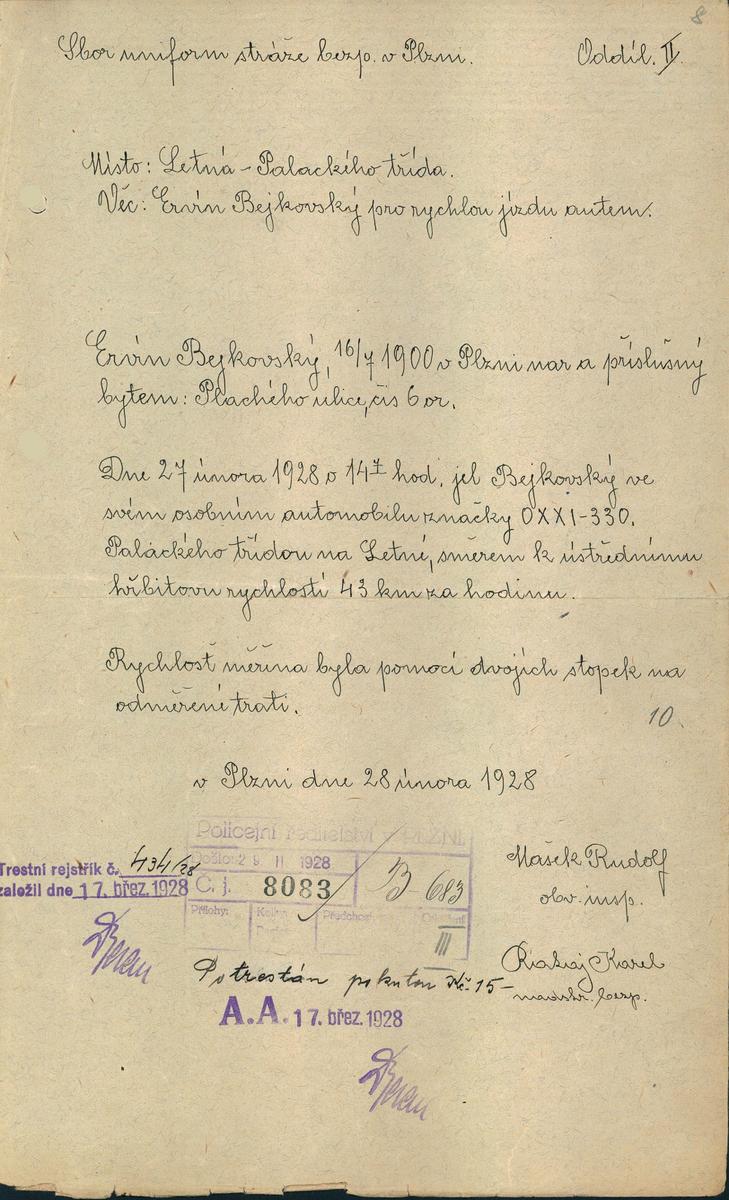 8
Sbor uniform stráže bezp. v Plzni. Oddíl. II.
Místo: Letná - Palackého třída.
Věc: Ervín Bejkovský pro rychlou jízdu autem.
Ervín Bejkovský, 16/7 1900 v Plzni nar a příslušný
bytem: Plachého ulice, čís 6 or.
Dne 27 února 1928 o 14 hod. jel Bejkovský ve
svém osobním automobilu značky OXXI-330.
Palackého třídou na Letné, směrem k ústřednímu
hřbitovu rychlostí 43 km za hodinu.
Rychlosť měřina byla pomocí dvojích stopek na
odměřené trati.
10.
v Plzni dne 28 února 1928
Policejní ředitelství v PLZNI.
Došlo: 29 II 1928
Č. j. 8083 B-683
Přílohy:
III
Trestní rejstřík č. 434/28
založil dne 17. břez. 1928
Mašek Rudolf
obv. insp.
Karel
Potrestán pokutou Kč 15-
A.A. 17. břez. 1928